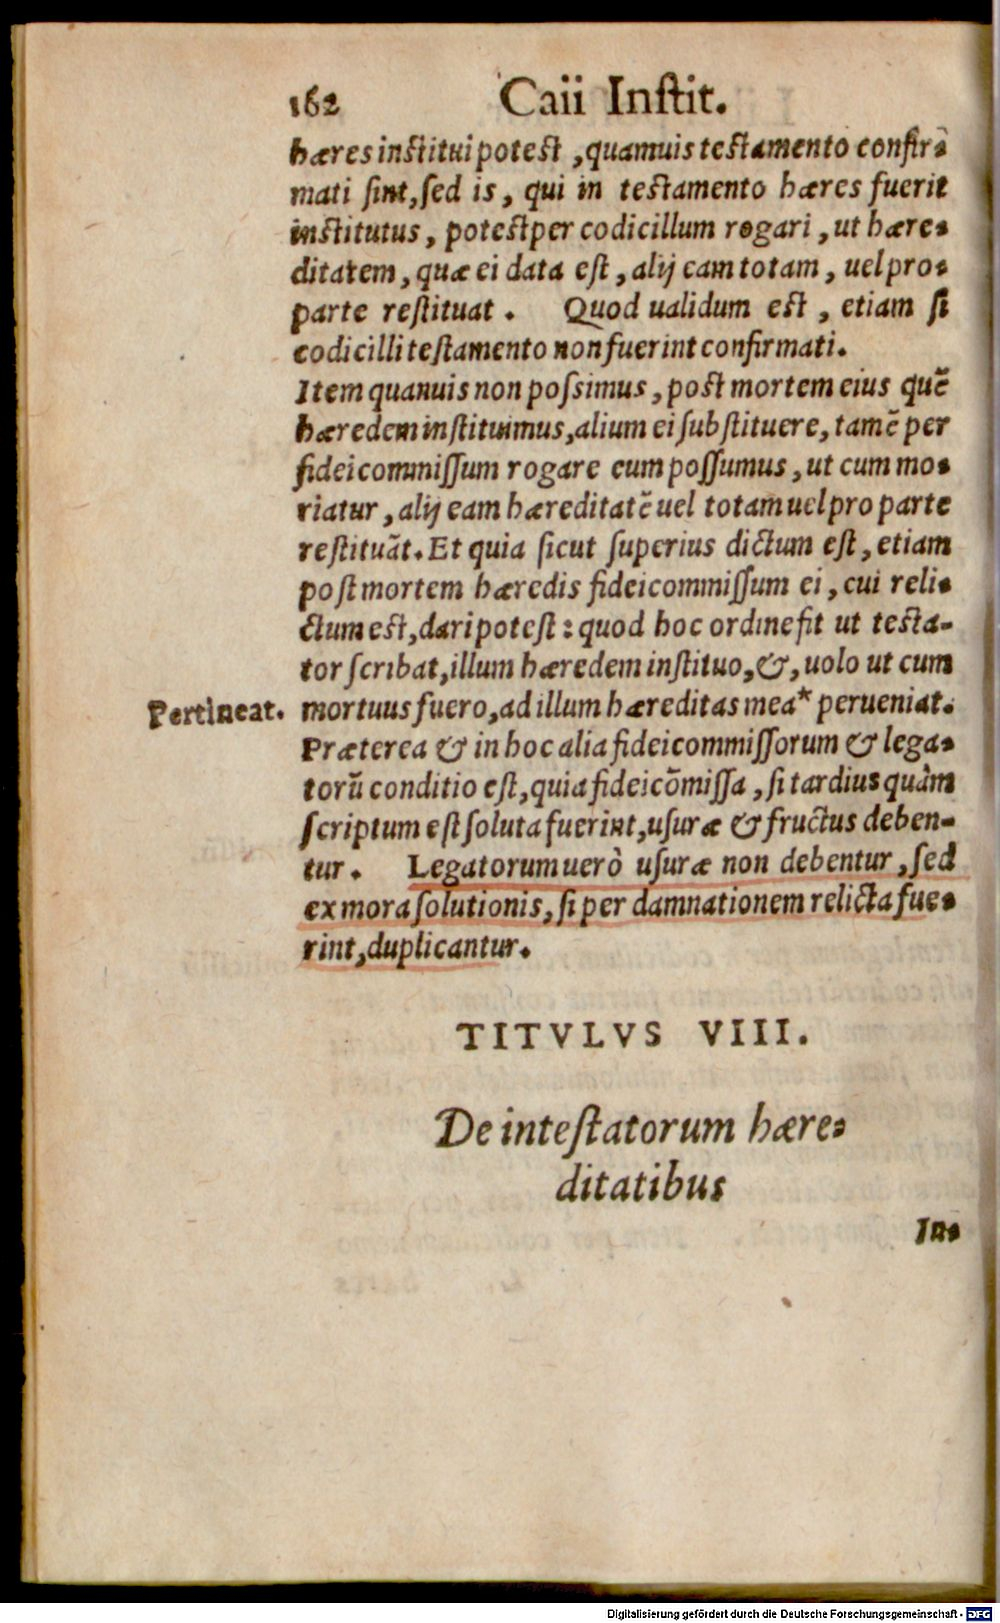 162 Caii Instit.
hæres institui potest, quamuis testamento confir-
mati sint, sed is, qui in testamento hæres fuerit
institutus, potest per codicillum rogari, ut hære-
ditatem, quæ ei data est, alij eam totam, uel pro-
parte restituat. Quod ualidum est, etiam si
codicilli testamento non fuerint confirmati.
Item quanuis non possimus, post mortem eius quē
hæredem instituimus, alium ei substituere, tamē per
fideicommissum rogare eum possumus, ut cum mo-
riatur, alij eam hæreditatē uel totam uel pro parte
restituāt. Et quia sicut superius dictum est, etiam
post mortem hæredis fideicommissum ei, cui reli-
ctum est, dari potest: quod hoc ordine fit ut testa-
tor scribat, illum hæredem instituo, &, uolo ut cum
Pertineat. mortuus fuero, ad illum hæreditas mea* perueniat.
Præterea & in hoc alia fideicommissorum & lega-
torū conditio est, quia fideicōmissa, si tardius quàm
scriptum est soluta fuerint, usuræ & fructus deben-
tur. Legatorum uerò usuræ non debentur, sed
ex mora solutionis, si per damnationem relicta fue-
rint, duplicantur.
TITVLVS VIII.
De intestatorum hære-
ditatibus
In-
Digitalisierung gefördert durch die Deutsche Forschungsgemeinschaft - DFG